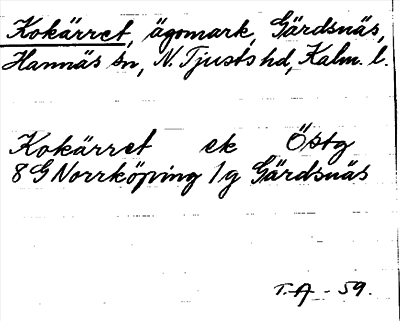 Kokärret, ägomark, Gärdsnäs,
Hannäs sn, N. Tjusts hd, Kalm. l.
Kokärret ek Östg
8 G Norrköping 1 g Gärdsnäs
T.A - 59.